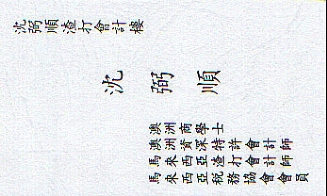 沈弼順渣打會計樓
沈弼順
澳洲商學士
澳洲資深特許會計師
馬來西亞渣打會計師
馬來西亞稅務協會會員